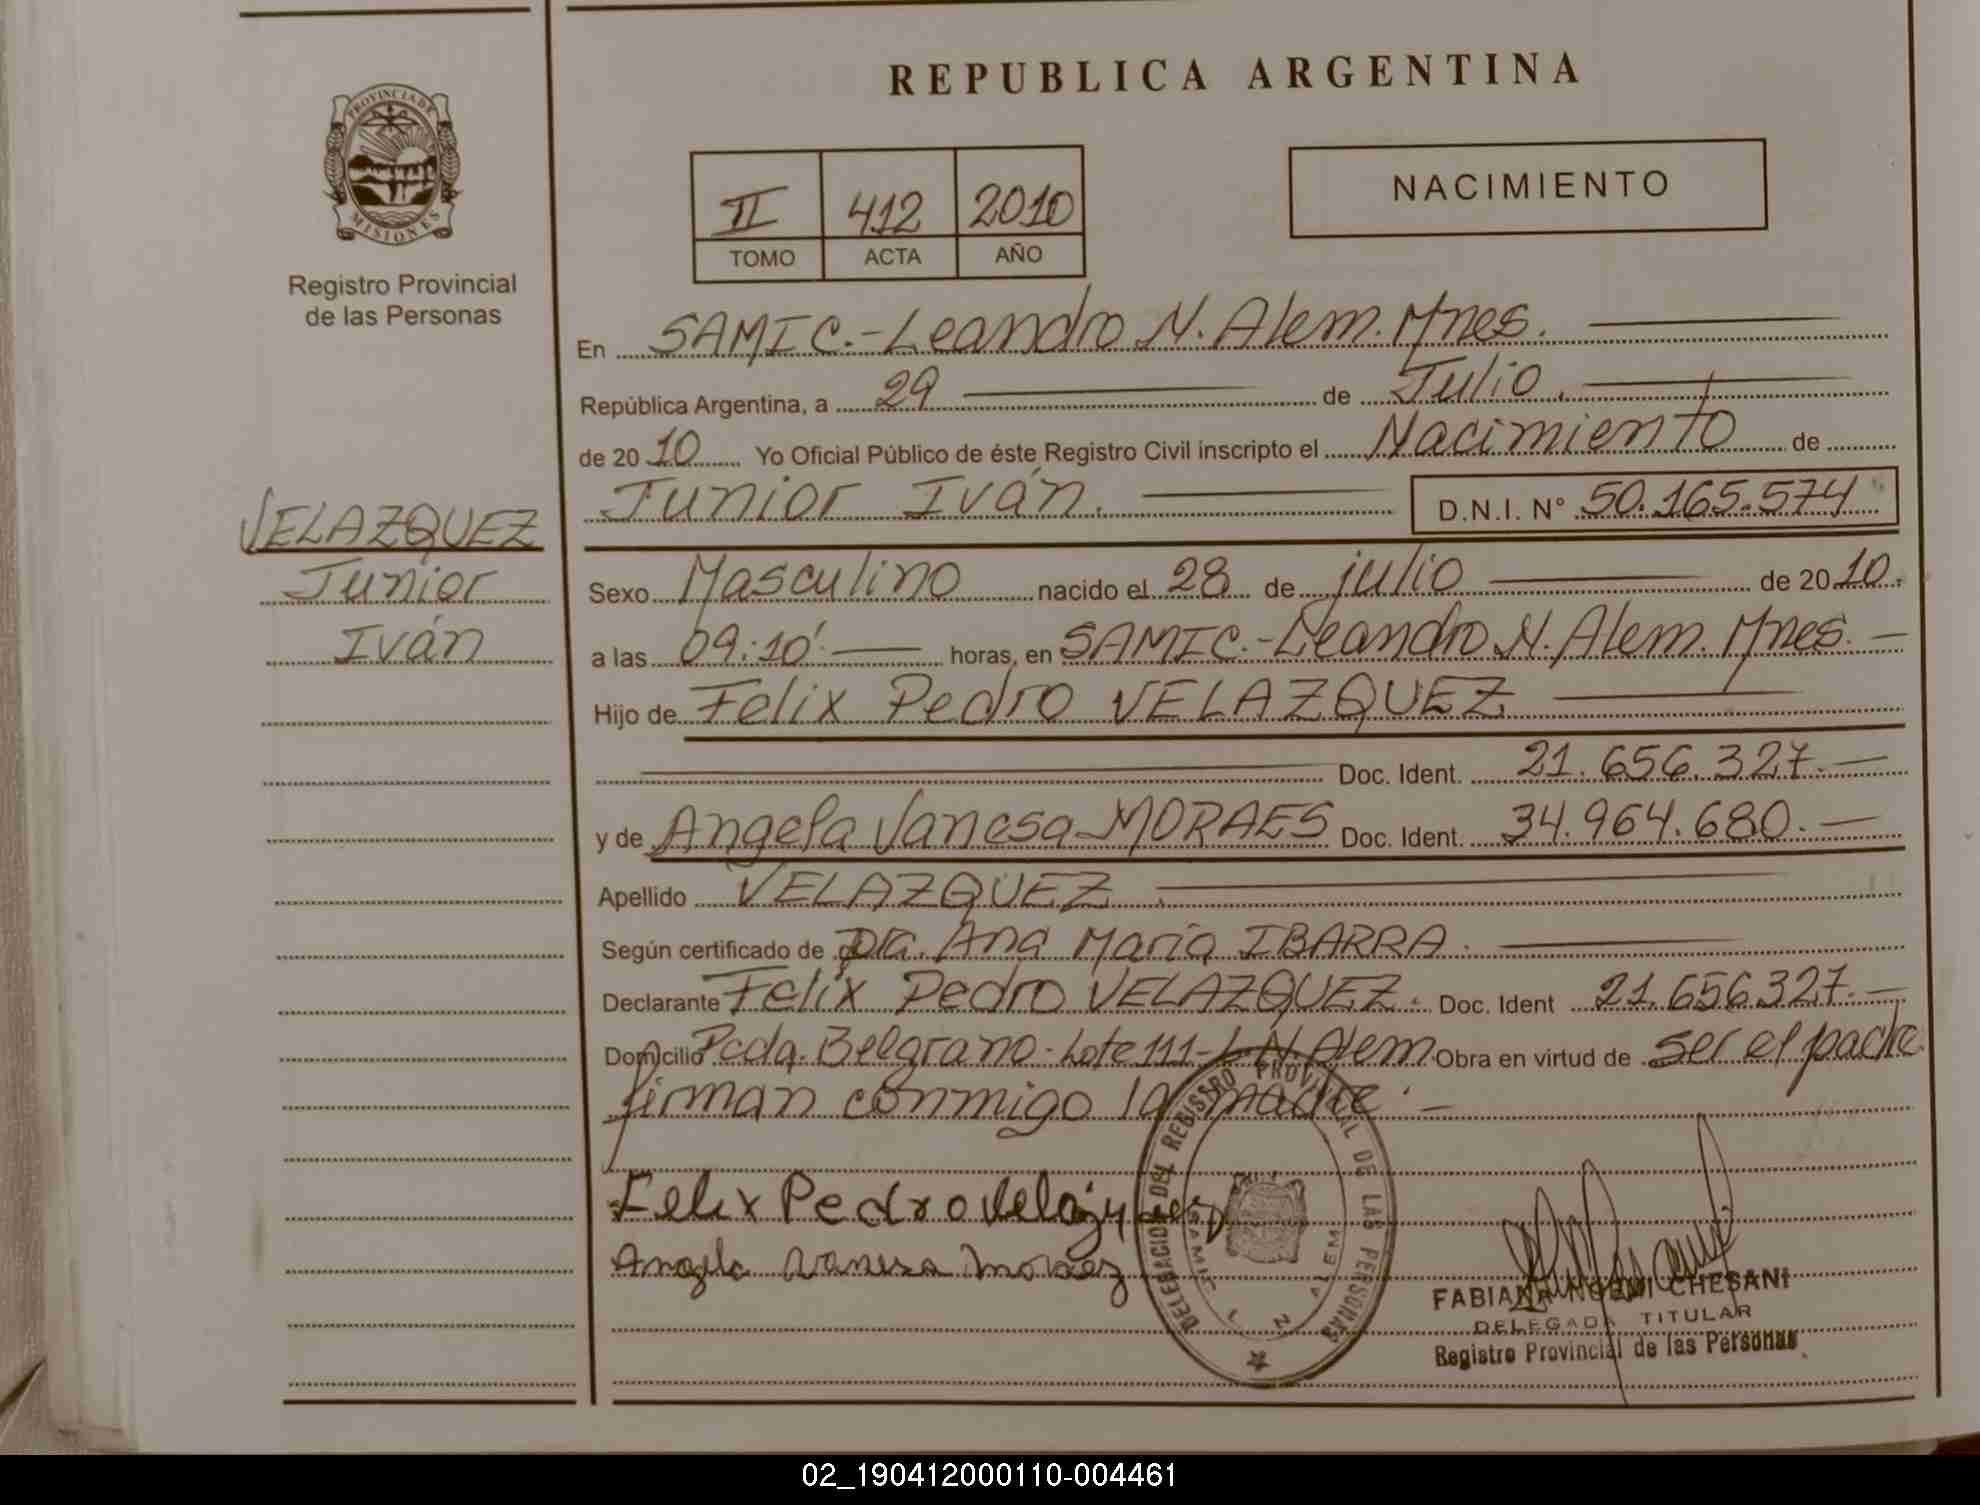 REPUBLICA ARGENTINA
PROVINCIA DE MISIONES
Registro Provincial
de las Personas
II 412 2010
TOMO ACTA AÑO
NACIMIENTO
En SAMIC.-Leandro N. Alem. Mnes.
República Argentina, a 29 de Julio.
de 20 10 Yo Oficial Público de éste Registro Civil inscripto el Nacimiento de
Junior Iván. D.N.I. N° 50.165.574
VELAZQUEZ
Junior
Iván
Sexo Masculino nacido el 28 de julio de 20 10.
a las 09:10' horas, en SAMIC.-Leandro N. Alem. Mnes.
Hijo de Felix Pedro VELAZQUEZ
Doc. Ident. 21.656.327.
y de Angela Vanesa MORAES Doc. Ident. 34.964.680.
Apellido VELAZQUEZ.
Según certificado de Dra. Ana María IBARRA.
Declarante Felix Pedro VELAZQUEZ. Doc. Ident 21.656327.
Domicilio Pcda. Belgrano-Lote 111-L.N. Alem Obra en virtud de ser el padre
firman conmigo la madre.
Felix Pedro Velázquez
Angela Vanesa Moraez
DELEGACION DEL REGISTRO PROVINCIAL DE LAS PERSONAS
SAMIC L N ALEM
FABIANA NOEMI CHESANI
DELEGADA TITULAR
Registro Provincial de las Personas
02_190412000110-004461